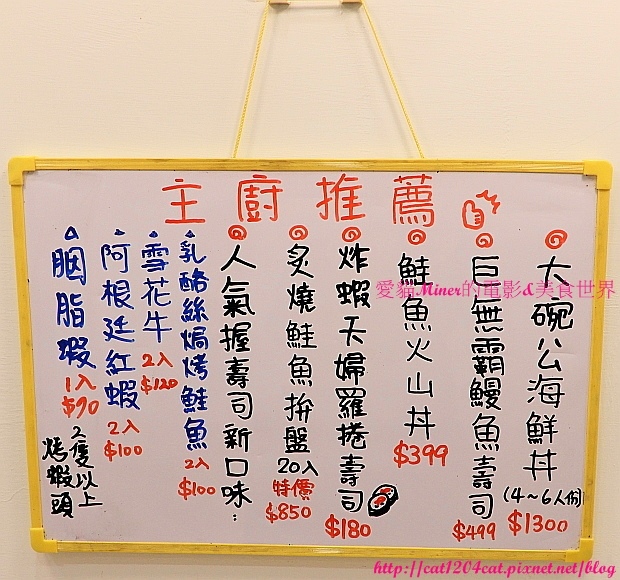 主廚推薦
大碗公海鮮丼
(4~6人份)
$1300
巨無霸鰻魚壽司
$499
鮭魚火山丼
$399
炸蝦天婦羅捲壽司
$180
炙燒鮭魚拚盤
20入
特價
$850
人氣握壽司新口味…
乳酪絲焗烤鮭魚
2入
$100
雪花牛
2入
$120
阿根廷紅蝦
2入
$100
胭脂蝦
1入
$90
2隻以上
烤蝦頭
愛貓Miner的電影&美食世界
http://cat1204cat.pixnet.net/blog